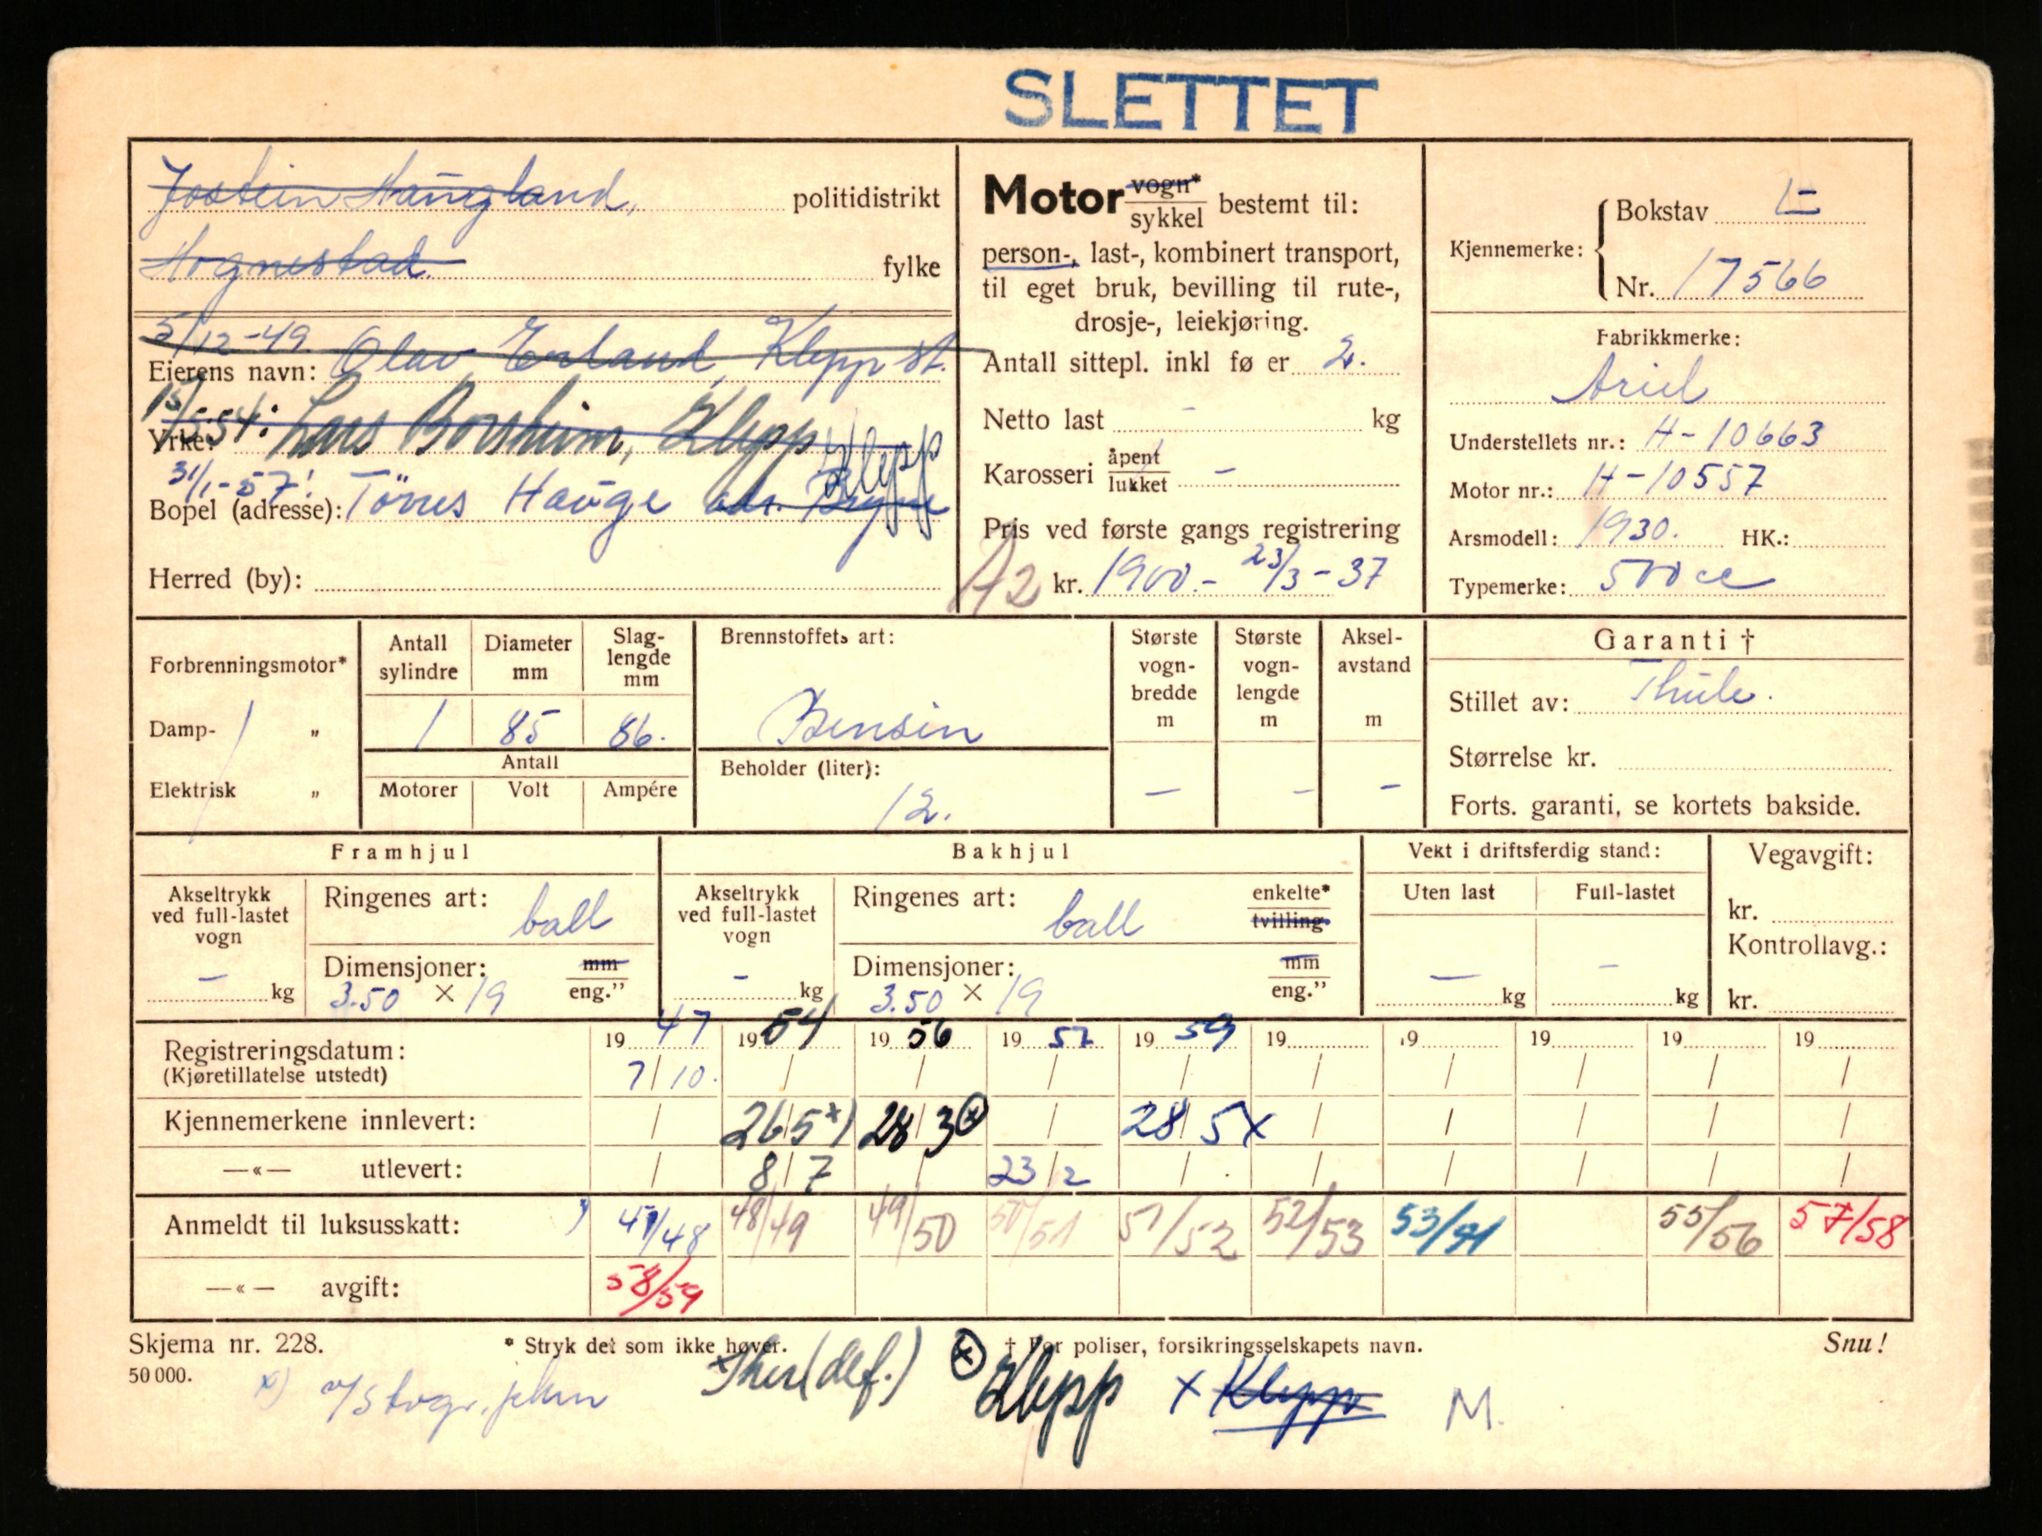 SLETTET
Jostein Haugland, politidistrikt
Hognestad. fylke
5/12-49 Olav Erland, Klepp st.
Eierens navn:
15/5.54: Lars Borsheim, Klepp
Yrke:
31/1-57: Tönnes Hauge adr. Bryne Klepp
Bopel (adresse):
Herred (by):
Motor vogn* / sykkel bestemt til:
person-, last-, kombinert transport,
til eget bruk, bevilling til rute-,
drosje-, leiekjøring.
Antall sittepl. inkl fører 2.
Netto last - kg
Karosseri åpent / lukket -
Pris ved første gangs registrering
A2 kr. 1900.- 23/3-37
Kjennemerke: Bokstav L
Nr. 17566
Fabrikkmerke:
Ariel
Understellets nr.: H-10663
Motor nr.: H-10557
Arsmodell: 1930. HK.:
Typemerke: 500cc
Forbrenningsmotor*
Damp- „
Elektrisk „
Antall sylindre Diameter mm Slag-lengde mm
1 85 86.
Antall
Motorer Volt Ampére
Brennstoffets art:
Bensin
Beholder (liter):
12.
Største vogn-bredde m Største vogn-lengde m Aksel-avstand m
- - -
Garanti †
Stillet av: Thule.
Størrelse kr.
Forts. garanti, se kortets bakside.
Framhjul
Akseltrykk ved full-lastet vogn
- kg
Ringenes art: ball
Dimensjoner: mm / eng."
3.50 × 19
Bakhjul
Akseltrykk ved full-lastet vogn
- kg
Ringenes art: ball enkelte* / tvilling.
Dimensjoner: mm / eng."
3.50 × 19
Vekt i driftsferdig stand:
Uten last Full-lastet
- kg - kg
Vegavgift:
kr.
Kontrollavg.:
kr.
Registreringsdatum: 1947 1954 1956 1957 1959 19 19 19 19 19
(Kjøretillatelse utstedt) 7/10. / / / / / / / / /
Kjennemerkene innlevert: / 26/5*) 28/3⊗ / 28/5x / / / / /
—«— utlevert: / 8/7 / 23/2 / / / / / /
Anmeldt til luksusskatt: 47/48 48/49 49/50 50/51 51/52 52/53 53/54 55/56 57/58
—«— avgift: 58/59
Skjema nr. 228. * Stryk det som ikke høver. † For poliser, forsikringsselskapets navn. Snu!
50 000. x) (def.) ⊗ Klepp x Klepp M.